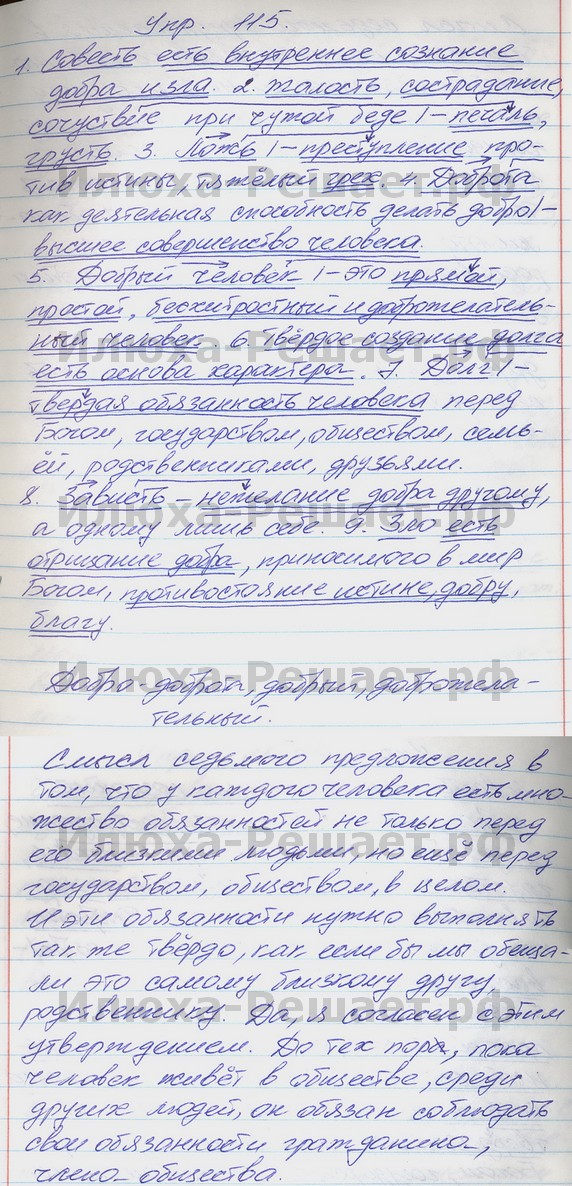 Упр. 115.
1. Совесть есть внутреннее сознание
добра и зла. 2. Жалость, сострадание,
сочуствие при чужой беде – печаль,
грусть. 3. Ложь – преступление про-
тив истины, тяжёлый грех. 4. Доброта
как деятельная способность делать добро –
высшее совершенство человека.
5. Добрый человек – это прямой,
простой, бесхитростный и доброжелатель-
ный человек. 6. Твёрдое создание долга
есть основа характера. 7. Долг –
твердая обязанность человека перед
Богом, государством, обществом, семь-
ёй, родственниками, друзьями.
8. Зависть – нежелание добра другому,
а одному лишь себе. 9. Зло есть
отрицание добра, приносимого в мир
Богом, противостояние истине, добру,
благу.
Добро – доброта, добрый, доброжела-
тельный.
Смысл седьмого предложения в
том, что у каждого человека есть мно-
жество обязанностей не только перед
его близкими людьми, но ещё перед
государством, обществом, в целом.
И эти обязанности нужно выполнять
так же твёрдо, как если бы мы обеща-
ли это самому близкому другу,
родственнику. Да, я согласен с этим
утверждением. До тех пор, пока
человек живёт в обществе, среди
других людей, он обязан соблюдать
свои обязанности гражданина,
члена общества.
Илюха-Решает.рф
Илюха-Решает.рф
Илюха-Решает.рф
Илюха-Решает.рф
Илюха-Решает.рф
Илюха-Решает.рф